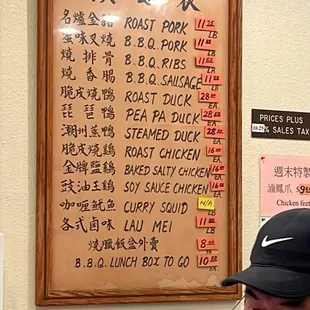 名爐金豬 ROAST PORK 11 25 LB
蜜味叉燒 B.B.Q. PORK 11 LB
燒排骨 B.B.Q. RIBS 11 LB
燒香腸 B.B.Q. SAUSAGE 11 LB
脆皮燒鴨 ROAST DUCK 28 EA
琵琶鴨 PEA PA DUCK 28 EA
潮州蒸鴨 STEAMED DUCK 28 EA
脆皮燒鷄 ROAST CHICKEN 16 EA
金牌鹽鷄 BAKED SALTY CHICKEN 16 EA
豉油王鷄 SOY SAUCE CHICKEN 16 EA
咖喱魷魚 CURRY SQUID N/A
各式鹵味 LAU MEI 11 LB
燒臘飯盆外賣 8
B.B.Q. LUNCH BOX TO GO 10 EA
PRICES PLUS
10.25% SALES TAX
週末特製
滷鳳爪 $9
Chicken feet